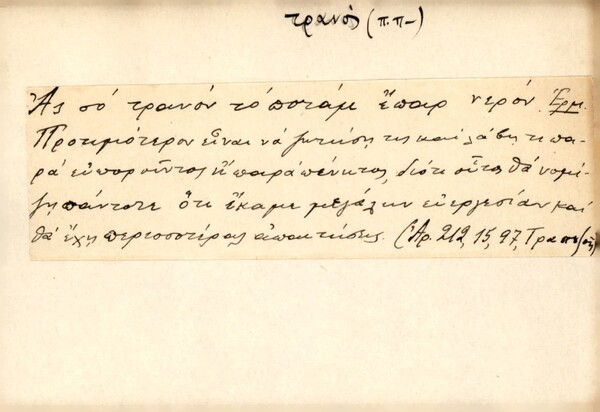 τρανός (π.π-)
Ἀς σό τρανόν τό ποτάμ ἔπαρ νερόν. Ἑρμ.
Προτιμότερον εἶναι νά ζητήσῃ τις καί λάβῃ τι πα-
ρά εὐποροῦντος ἤ παρά πένητος, διότι οὗτος θά νομί-
ζῃ πάντοτε ὅτι ἔκαμε μεγάλην εὐεργεσίαν καί
θά ἔχῃ περισσοτέρας ἀπαιτήσεις. (Ἀρ. 212, 15, 97, Τραπεζοῦς)